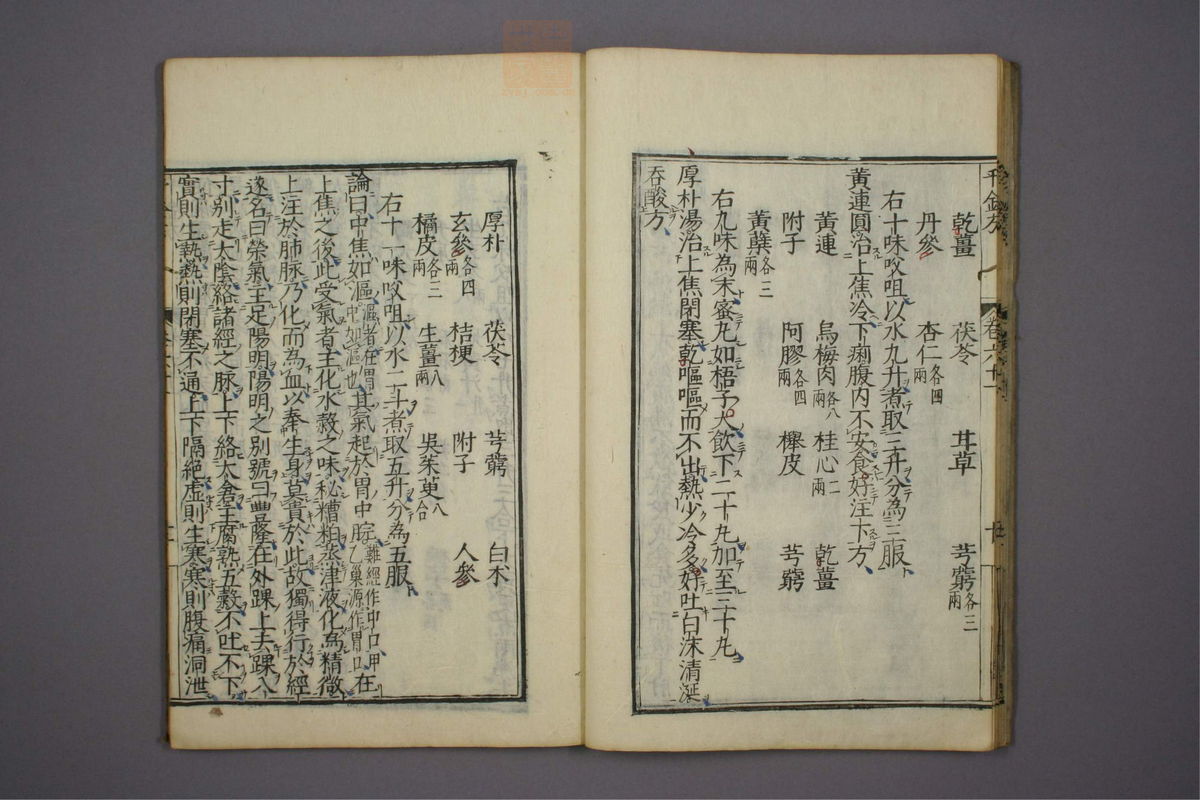 千金方 卷六十一
乾薑 茯苓 甘草 芎藭各三兩
丹參 杏仁各四兩
右十味㕮咀以水九升煮取三升分為三服
黃連圓治上焦冷下痢腹內不安食好注下方
黃連 烏梅肉各八兩 桂心二兩 乾薑
附子 阿膠各四兩 櫸皮 芎藭
黃蘗各三兩
右九味為末蜜丸如梧子大飲下二十丸加至三十丸
厚朴湯治上焦閉塞乾嘔嘔而不出熱少冷多好吐白沫清涎
吞酸方
厚朴 茯苓 芎藭 白朮
玄參各四兩 桔梗 附子 人參
橘皮各三兩 生薑八兩 吳茱萸八合
右十一味㕮咀以水二斗煮取五升分為五服
論曰中焦如漚漚者在胃中如漚也其氣起於胃中脘難經作中口甲乙巢源作胃口在
上焦之後此受氣者主化水穀之味秘糟粕蒸津液化為精微
上注於肺脉乃化而為血以奉生身莫貴於此故獨得行於經
遂名曰榮氣主足陽明陽明之別號曰豐隆在外踝上去踝八
寸別走太陰絡諸經之脉上下絡太倉主腐熟五穀不吐不下
實則生熱熱則閉塞不通上下隔絕虛則生寒寒則腹痛洞泄